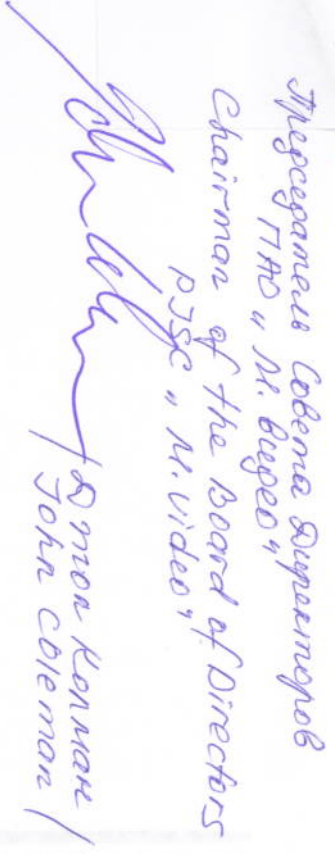 Председатель Совета Директоров
ПАО „М.видео"
Chairman of the Board of Directors
PJSC „M.video"
/Джон Колман
John Coleman/